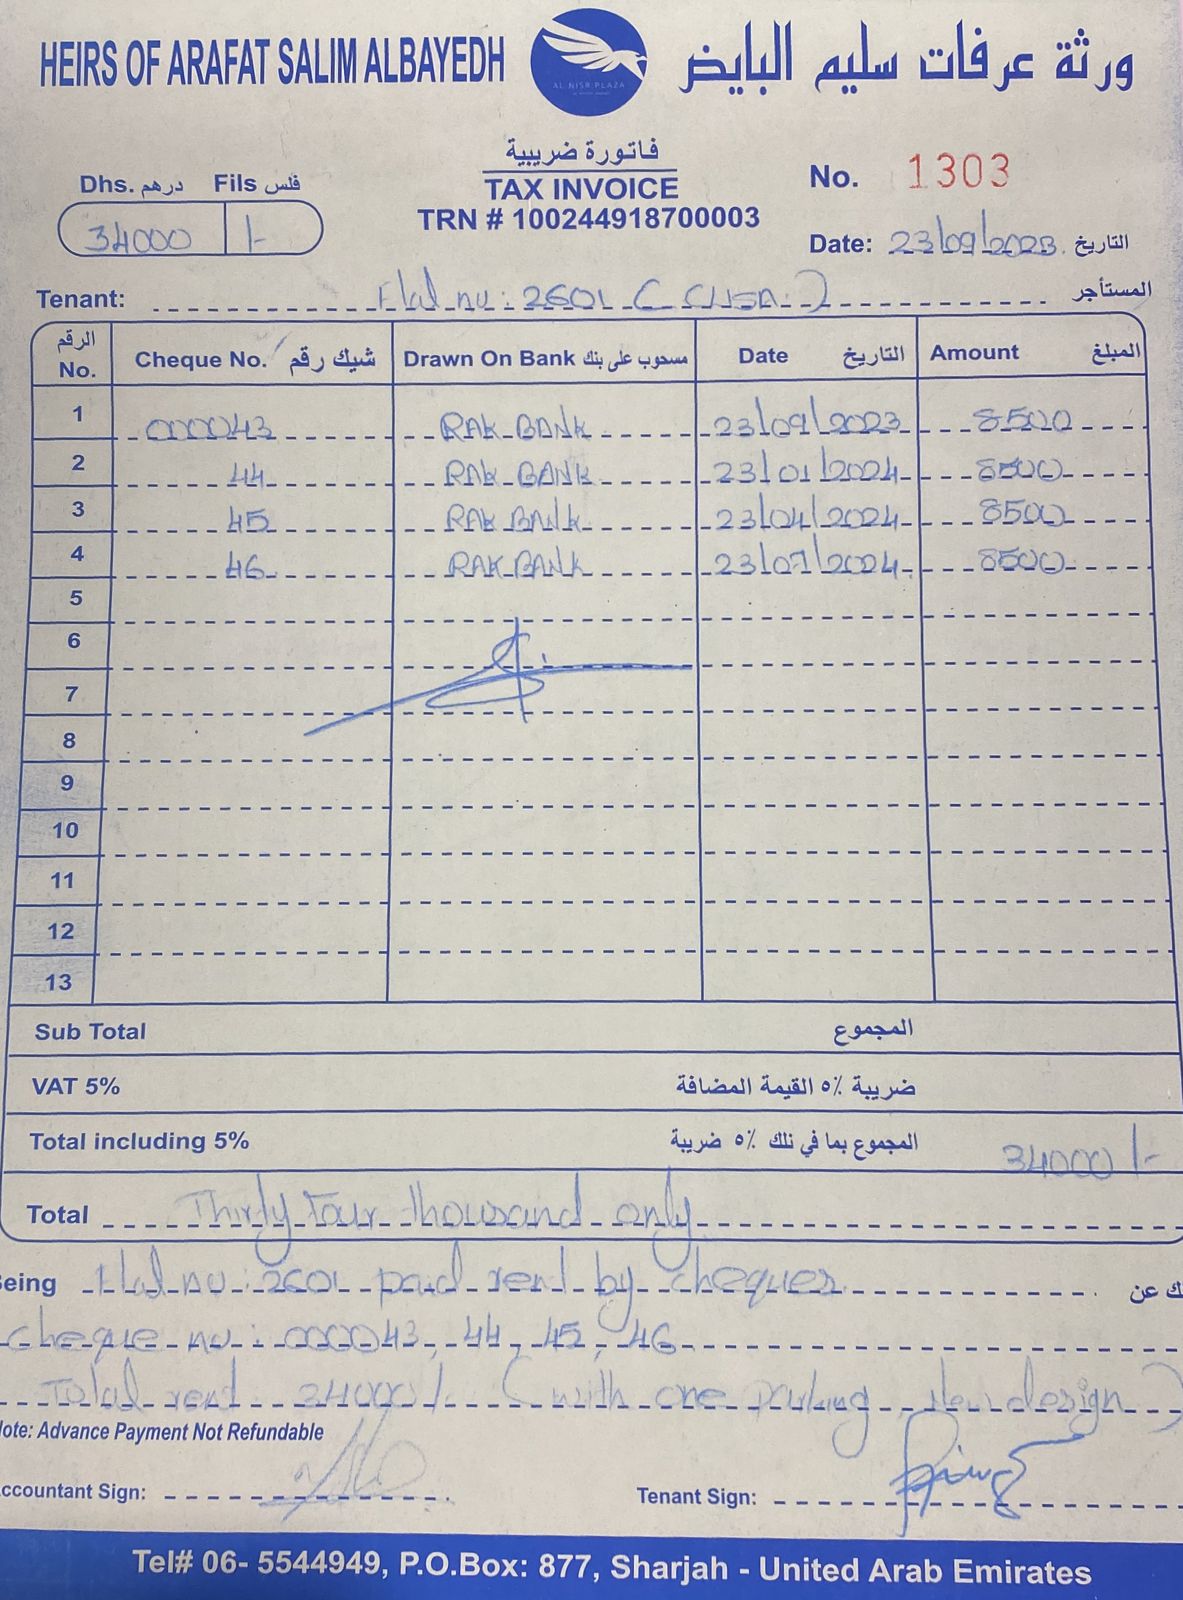 HEIRS OF ARAFAT SALIM ALBAYEDH
AL NISR PLAZA
ورثة عرفات سليم البايض
فاتورة ضريبية
TAX INVOICE
TRN # 100244918700003
Dhs. درهم Fils فلس
34000 /-
No. 1303
Date: 23/09/2023 التاريخ
Tenant: Flat no: 2601 المستأجر
الرقم No. Cheque No. شيك رقم Drawn On Bank مسحوب على بنك Date التاريخ Amount المبلغ
1 000043 RAK BANK 23/09/2023 8500
2 44 RAK BANK 23/01/2024 8500
3 45 RAK BANK 23/04/2024 8500
4 46 RAK BANK 23/07/2024 8500
5
6
7
8
9
10
11
12
13
Sub Total المجموع
VAT 5% ضريبة ٥٪ القيمة المضافة
Total including 5% المجموع بما في نلك ٥٪ ضريبة 34000/-
Total Thirty four thousand only
eing Flat no: 2601 paid rent by cheques ك عن
cheque no: 000043, 44, 45, 46
Total rent 34000/- (with one parking
ote: Advance Payment Not Refundable
ccountant Sign:
Tenant Sign:
Tel# 06- 5544949, P.O.Box: 877, Sharjah - United Arab Emirates